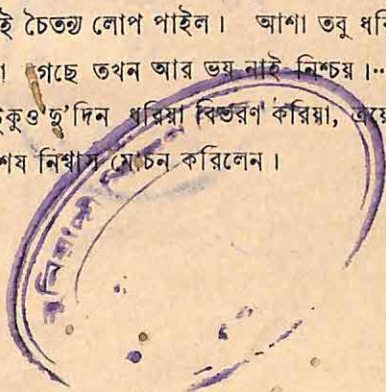 ই চৈতন্য লোপ পাইল। আশা তবু ধরি
গেছে তখন আর ভয় নাই নিশ্চয়।..
টুকুও দু'দিন ধরিয়া বিতরণ করিয়া, ত্রয়ে
শেষ নিশ্বাস মোচন করিলেন।